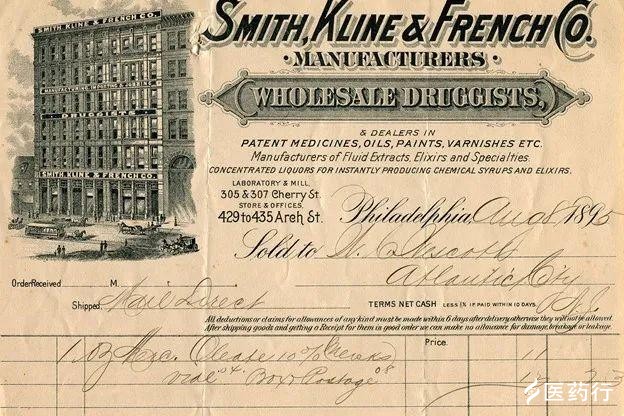 SMITH, KLINE & FRENCH CO.
MANUFACTURING, IMPORTING & JOBBING
DRUGGISTS
SMITH KLINE & FRENCH CO.
SMITH, KLINE & FRENCH CO.
• MANUFACTURERS •
WHOLESALE DRUGGISTS,
& DEALERS IN
PATENT MEDICINES, OILS, PAINTS, VARNISHES ETC.
Manufacturers of Fluid Extracts, Elixirs and Specialties.
CONCENTRATED LIQUORS FOR INSTANTLY PRODUCING CHEMICAL SYRUPS AND ELIXIRS.
LABORATORY & MILL,
305 & 307 Cherry St.
STORE & OFFICES,
429 to 435 Arch St.
Philadelphia, Aug 8 1895
Sold to W.
Atlantic City
Order Received M.
N.J.
Shipped Mail Direct
TERMS NET CASH LESS 1% IF PAID WITHIN 10 DAYS.
All deductions or claims for allowances of any kind must be made within 6 days after delivery otherwise they will not be allowed.
After shipping goods and getting a Receipt for them in good order we can make no allowance for damage, breakage or leakage.
Price.
1 Oz Merc. Oleate 10% 11
vial 04 Box & Postage 08 12 23
医药行